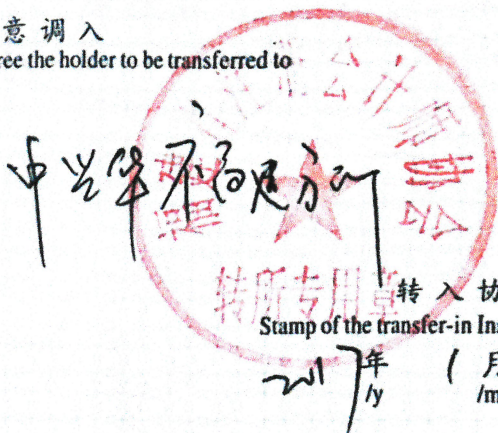 意调入
ree the holder to be transferred to
中兴华所福建分所
福建省注册会计师协会
转所专用章
转入协
Stamp of the transfer-in Ins
2017年 1月
/y /m